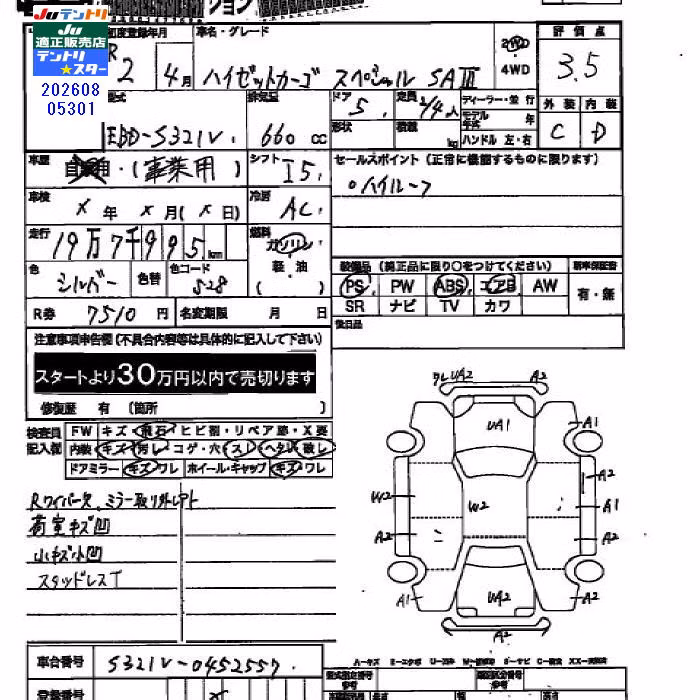 Juテントリ
Ju
適正販売店
テントリ
★スター
202608
05301
ション
初度登録年月
R2 4月
車名・グレード
ハイゼットカーゴ スペシャル SAⅢ
2WD
4WD
評価点
3.5
型式
EBD-S321V
排気量
660 cc
ドア
5
定員
2/4人
形状
積載
kg
ディーラー・並行
モデル年式 年
ハンドル 左・右
外装 内装
C D
車歴
自家用・(事業用)
シフト
I5
セールスポイント(正常に機能するものに限ります)
○ハイルーフ
車検
× 年 × 月(× 日)
冷房
AC
走行
19万7千995km
燃料
ガソリン
軽・油
( )
色
シルバー
色替
色コード
S28
装備品(純正品に限り○をつけてください)
新車保証書
PS PW ABS エアB AW
SR ナビ TV カワ
有・無
R券 7510円
名変期限 月 日
後日品
注意事項申告欄(不具合内容等は具体的に記入して下さい)
スタートより30万円以内で売切ります
修復歴 有 (箇所 )
検査員記入欄
FW キズ・飛石・ヒビ割・リペア跡・X要
内装 キズ・汚レ・コゲ・穴・スレ・ヘタレ・破レ
ドアミラー キズ・ワレ ホイール・キャップ キズ・ワレ
Rワイパー欠、ミラー取り外しアト
荷室キズ凹
小キズ小凹
スタッドレスT
ワレ UA2 A2
UA1 A1
A2
W2 W2 A1
A2 A2
A1 UA2 A2
A2
車台番号
S321V-0452557
登録番号